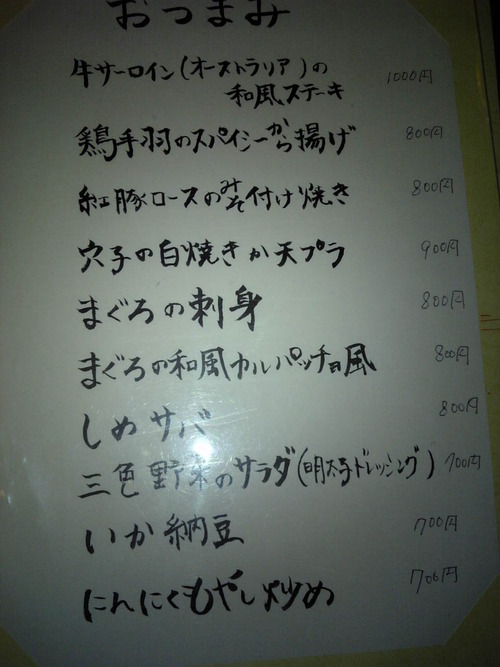 おつまみ
牛サーロイン(オーストラリア)の
和風ステーキ 1000円
鶏手羽のスパイシーから揚げ 800円
紅豚ロースのみそ付け焼き 800円
穴子の白焼きか天プラ 900円
まぐろの刺身 800円
まぐろの和風カルパッチョ風 800円
しめサバ 800円
三色野菜のサラダ(明太子ドレッシング) 700円
いか納豆 700円
にんにくもやし炒め 700円